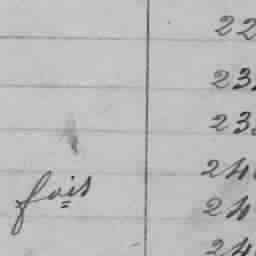 22
23
23
24
fois
24
24